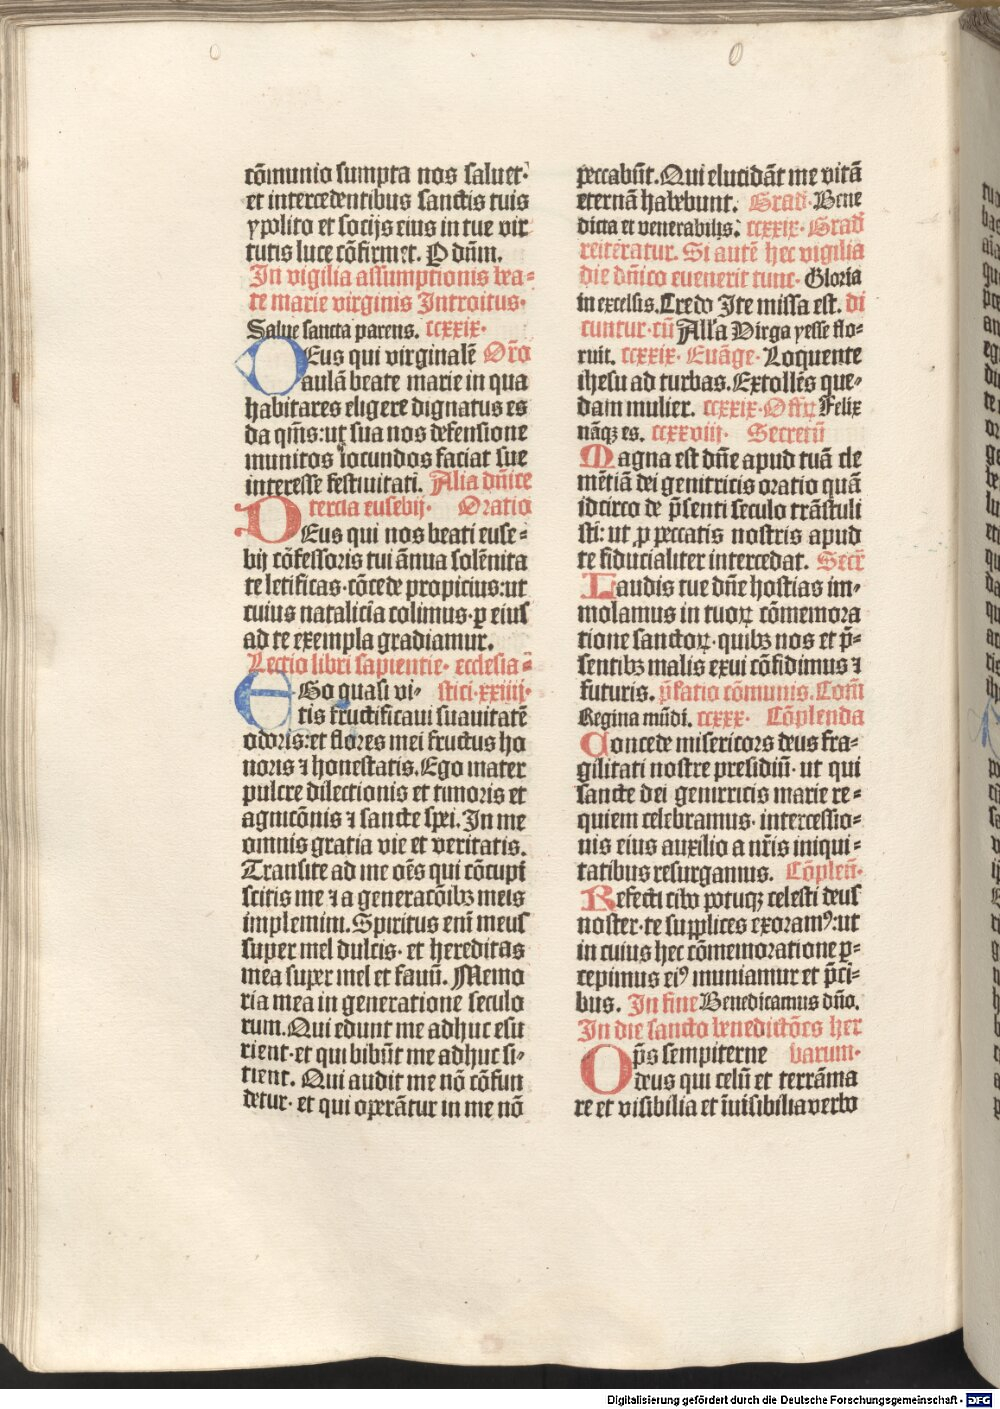 cõmunio sumpta nos saluet·
et intercedentibus sanctis tuis
ypolito et socijs eius in tue vir
tutis luce cõfirmet. P dñm.
In vigilia assumptionis bea⸗
te marie virginis Introitus·
Salue sancta parens. ccxxix·
DEus qui virginalẽ Oro
aulã beate marie in qua
habitares eligere dignatus es
da qm̃s: ut sua nos defensione
munitos iocundos faciat sue
interesse festiuitati. Alia dñice
tercia eusebij· Oratio
DEus qui nos beati euse⸗
bij cõfessoris tui ãnua solẽnita
te letificas·cõcede propicius:ut
cuius natalicia colimus·p eius
ad te exempla gradiamur.
Lectio libri sapientie· ecclesia⸗
EGo quasi vi⸗ stici·xxiiij·
tis fructificaui suauitatẽ
odoris:et flores mei fructus ho
noris ⁊ honestatis. Ego mater
pulcre dilectionis et timoris et
agnicõnis ⁊ sancte spei. In me
omnis gratia vie et veritatis.
Transite ad me oẽs qui cõcupi
scitis me ⁊ a generacõibꝫ meis
implemini. Spiritus eni meus
super mel dulcis· et hereditas
mea super mel et fauũ. Memo
ria mea in generatione seculo
rum. Qui edunt me adhuc esu
rient·et qui bibũt me adhuc si⸗
tient. Qui audit me nõ cõfun
detur· et qui operãtur in me nõ
peccabũt. Qui elucidãt me vitã
eternã habebunt. Grad· Bene
dicta et venerabilis. ccxxix· Grad
reiteratur. Si autẽ hec vigilia
die dñico euenerit tunc· Gloria
in excelsis. Credo Ite missa est. di
cuntur·cũ Alla Virga yesse flo⸗
ruit. ccxxix· Euãge· Loquente
ihesu ad turbas. Extollẽs que⸗
dam mulier. ccxxix· Offꝝ Felix
nãqꝫ es. ccxxviij· Secretũ
Magna est dñe apud tuã cle
mẽtiã dei genitricis oratio quã
idcirco de p̃senti seculo trãstuli
sti: ut ꝓ peccatis nostris apud
te fiducialiter intercedat. Secr̃
Laudis tue dñe hostias im⸗
molamus in tuoꝝ cõmemora
tione sanctoꝝ· quibꝫ nos et p̃⸗
sentibꝫ malis exui cõfidimus ⁊
futuris. p̃fatio cõmunis. Com̃
Regina mũdi. ccxxx· Cõplenda
Concede misericors deus fra⸗
gilitati nostre presidiũ· ut qui
sancte dei genitricis marie re⸗
quiem celebramus· intercessio⸗
nis eius auxilio a nr̃is iniqui⸗
tatibus resurgamus. Cõpleñ·
Refecti cibo potuqꝫ celesti deus
noster·te supplices exoramꝰ:ut
in cuius hec cõmemoratione p⸗
cepimus eiꝰ muniamur et p̃ci⸗
bus. In fine Benedicamus dño.
In die sancto benedictões her
OPs̃ sempiterne barum·
deus qui celũ et terrã ma
re et visibilia et ĩuisibilia verbo
Digitalisierung gefördert durch die Deutsche Forschungsgemeinschaft - DFG